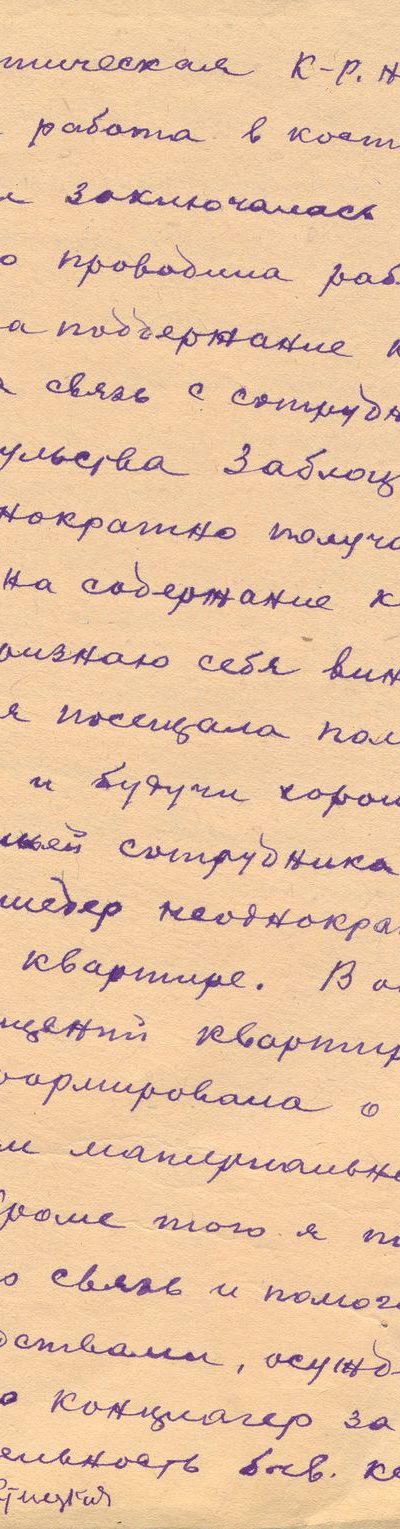 тическая К-Р. н
работа в кост
заключалась
о проводила раб
а поддержание к
связь с сотрудн
ульства Заблоц
нократно получа
на содержание к
ризнаю себя вин
я посещала пол
и будучи хорош
сотрудника
неоднокра
квартире. В о
щений квартир
формирована о
м материально
роме того я п
ю связь и помог
дствами, осужд
о концлагер за
ельность быв. к